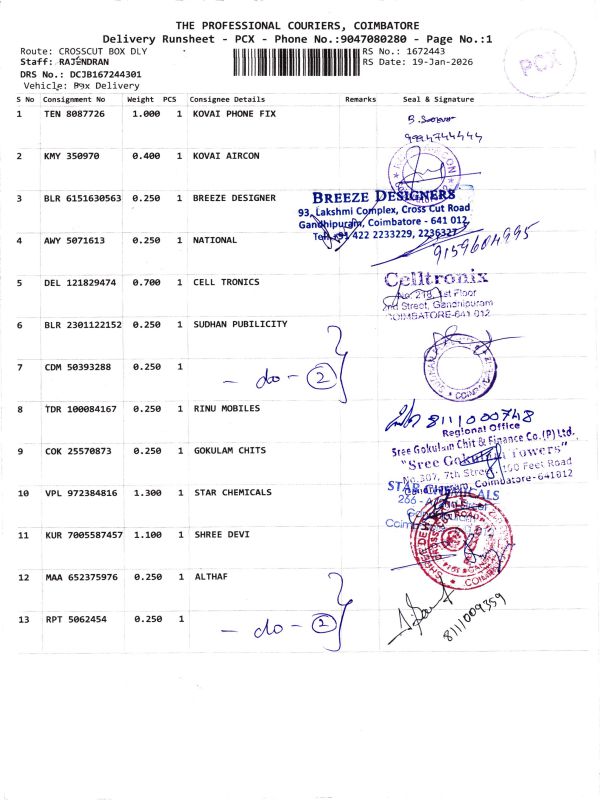 THE PROFESSIONAL COURIERS, COIMBATORE
Delivery Runsheet - PCX - Phone No.:9047080280 - Page No.:1
Route: CROSSCUT BOX DLY
RS No.: 1672443
Staff: RAJENDRAN
RS Date: 19-Jan-2026
DRS No.: DCJB167244301
Vehicle: Box Delivery
PCX
S No Consignment No Weight PCS Consignee Details Remarks Seal & Signature
1 TEN 8087726 1.000 1 KOVAI PHONE FIX
9994744444
2 KMY 350970 0.400 1 KOVAI AIRCON
3 BLR 6151630563 0.250 1 BREEZE DESIGNER
BREEZE DESIGNERS
93, Lakshmi Complex, Cross Cut Road
Gandhipuram, Coimbatore - 641 012
Tel: +91 422 2233229, 2236327
4 AWY 5071613 0.250 1 NATIONAL
9159604995
5 DEL 121829474 0.700 1 CELL TRONICS
Celltronix
No. 218, 1st Floor
2nd Street, Gandhipuram
COIMBATORE-641 012
6 BLR 2301122152 0.250 1 SUDHAN PUBILICITY
7 CDM 50393288 0.250 1
- do - 2
8 TDR 100084167 0.250 1 RINU MOBILES
8111000748
9 COK 25570873 0.250 1 GOKULAM CHITS
Regional Office
Sree Gokulam Chit & Finance Co.(P) Ltd.
"Sree Gokulam Towers"
No.307, 7th Street, 100 Feet Road
Gandhipuram, Coimbatore-641012
10 VPL 972384816 1.300 1 STAR CHEMICALS
STAR CHEMICALS
11 KUR 7005587457 1.100 1 SHREE DEVI
12 MAA 652375976 0.250 1 ALTHAF
13 RPT 5062454 0.250 1
- do - 2
8111009359